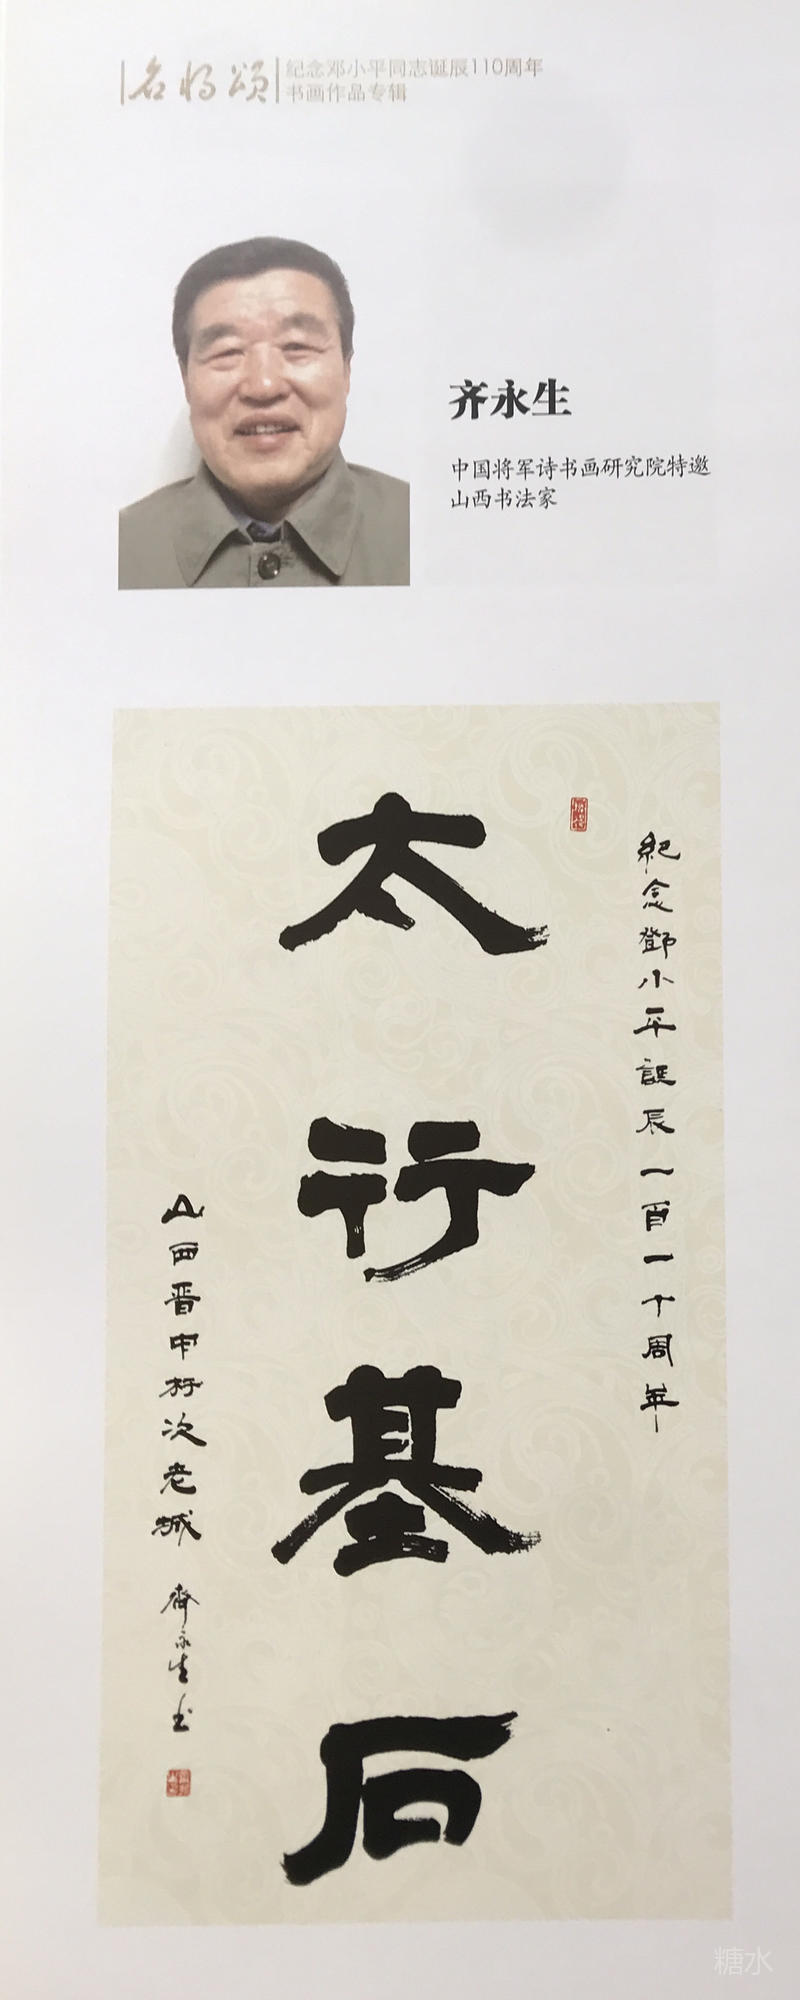 名将颂
纪念邓小平同志诞辰110周年
书画作品专辑
齐永生
中国将军诗书画研究院特邀
山西书法家
紀念鄧小平誕辰一百一十周年
太行基石
山西晋中榆次老城 齊永生书
糖水